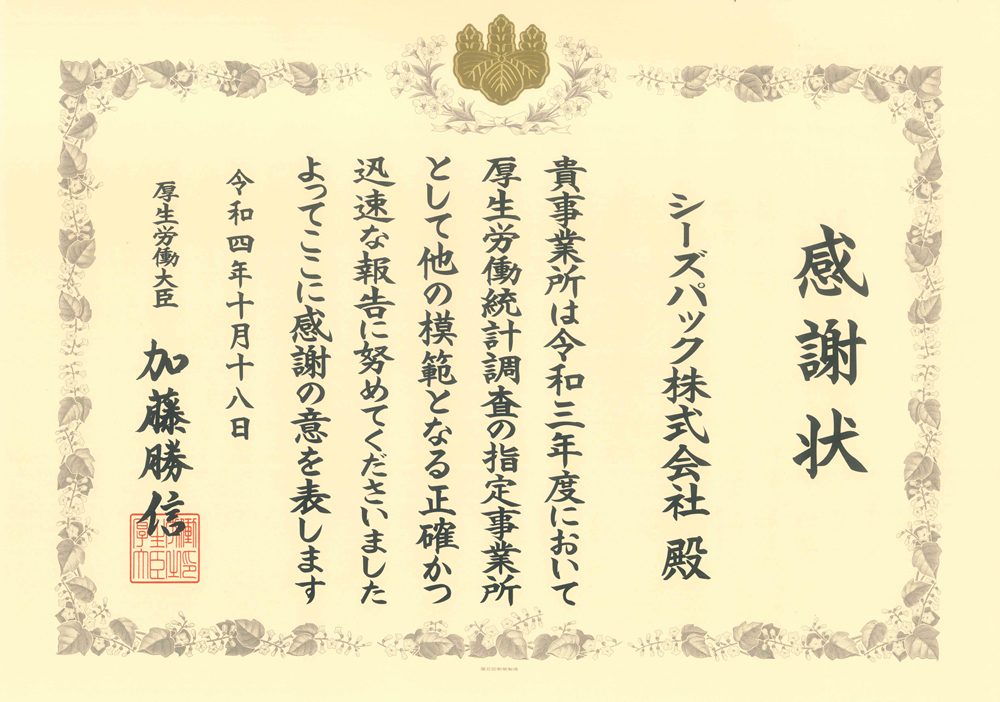 感謝状
シーズパック株式会社 殿
貴事業所は令和三年度において
厚生労働統計調査の指定事業所
として他の模範となる正確かつ
迅速な報告に努めてくださいました
よってここに感謝の意を表します
令和四年十月十八日
厚生労働大臣 加藤勝信